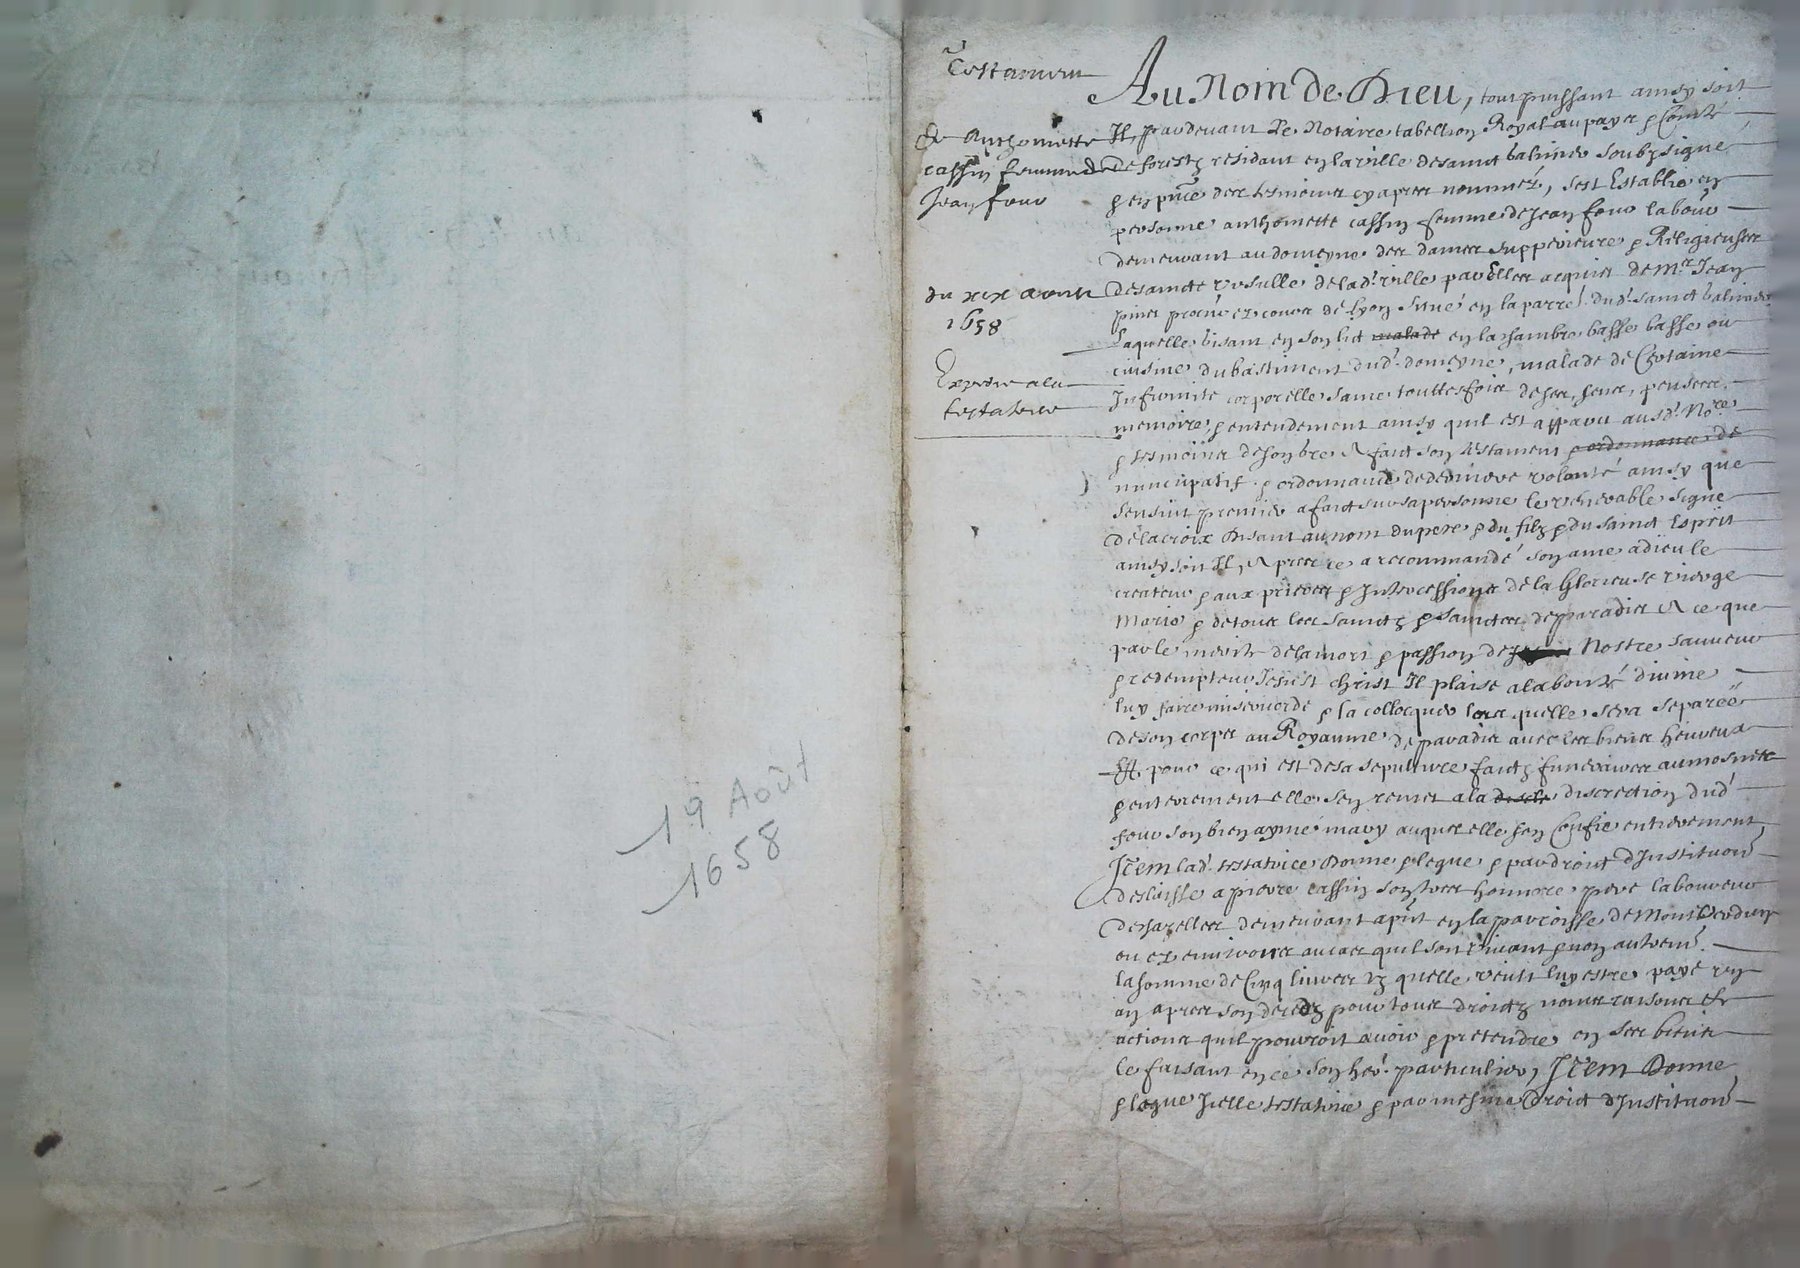 19 Août
1658
Testament
de Anthoinette
cassin femme de
Jean four
du xix aoust
1658
Expedié a la
testatrice
Au Nom de Dieu, tout puissant ainsy soit
Il, pardevant le Notaire tabellion Royal au pays & Comté
de forestz residant en la ville de sainct Galmier soubzsigné
& en pnce des tesmoins cy apres nommez, sest Establie en
personne anthoinette cassin femme de Jean four labour
demeurant au domeyne des dames supperieure & Religieuses
de saincte Ursulle de lad. ville par elles acquis de Mr Jean
procur ez cours de lyon situé en la parre. dud. sainct Galmier
Laquelle gisant en son lict malade en la chambre basse basse ou
cuisine du bastiment dud. domeyne, malade de Certaine
Infirmité corporelle saine touttesfois de ses sens, pensees,
memoire, & entendement ainsy quil est apparu ausd. Nore
& tesmoins de son bre A faict son testament & ordonnance de
nuncupatif & ordonnance de derniere volonté ainsy que
sensuit premier a faict sur sa personne le venerable signe
de la croix Disant au nom du pere & du filz & du sainct Esprit
ainsy soit Il, Apres ce a recommandé son ame a dieu le
createur & aux prieres & Intercessions de la Glorieuse vierge
Marie & de tous les sainctz & sainctes de paradis A ce que
par le merite de la mort & passion de Nostre sauveur
& redempteur Jesust christ Il plaise a la bonté divine
luy faire misericorde & la collocquer lors quelle sera separée
de son corps au Royaume de paradis avec les biens heureux
Et pour ce qui est de sa sepulture faictz funeraires aumosnes
& enterrement elle sen remet a la discretion dud.
four son bien aymé mary auquel elle sen Confie entierement,
Item lad. testatrice Donne & legue & par droict dInstituon
deslaisse a pierre cassin son tres honnoré pere laboureur
de demeurant a pnt en la parroisse de Montverdun
ou ez environs au cas quil soit vivant & non autrem.
la somme de Cinq livres tz quelle veult luy estre payé un
an apres son decedz pour tous droictz noms raisons et
actions quil pourroit avoir & pretendre en ses biens
le faisant en ce son her. particulier, Item Donne
& legue Icelle testatrice & par mesme droict dInstituon